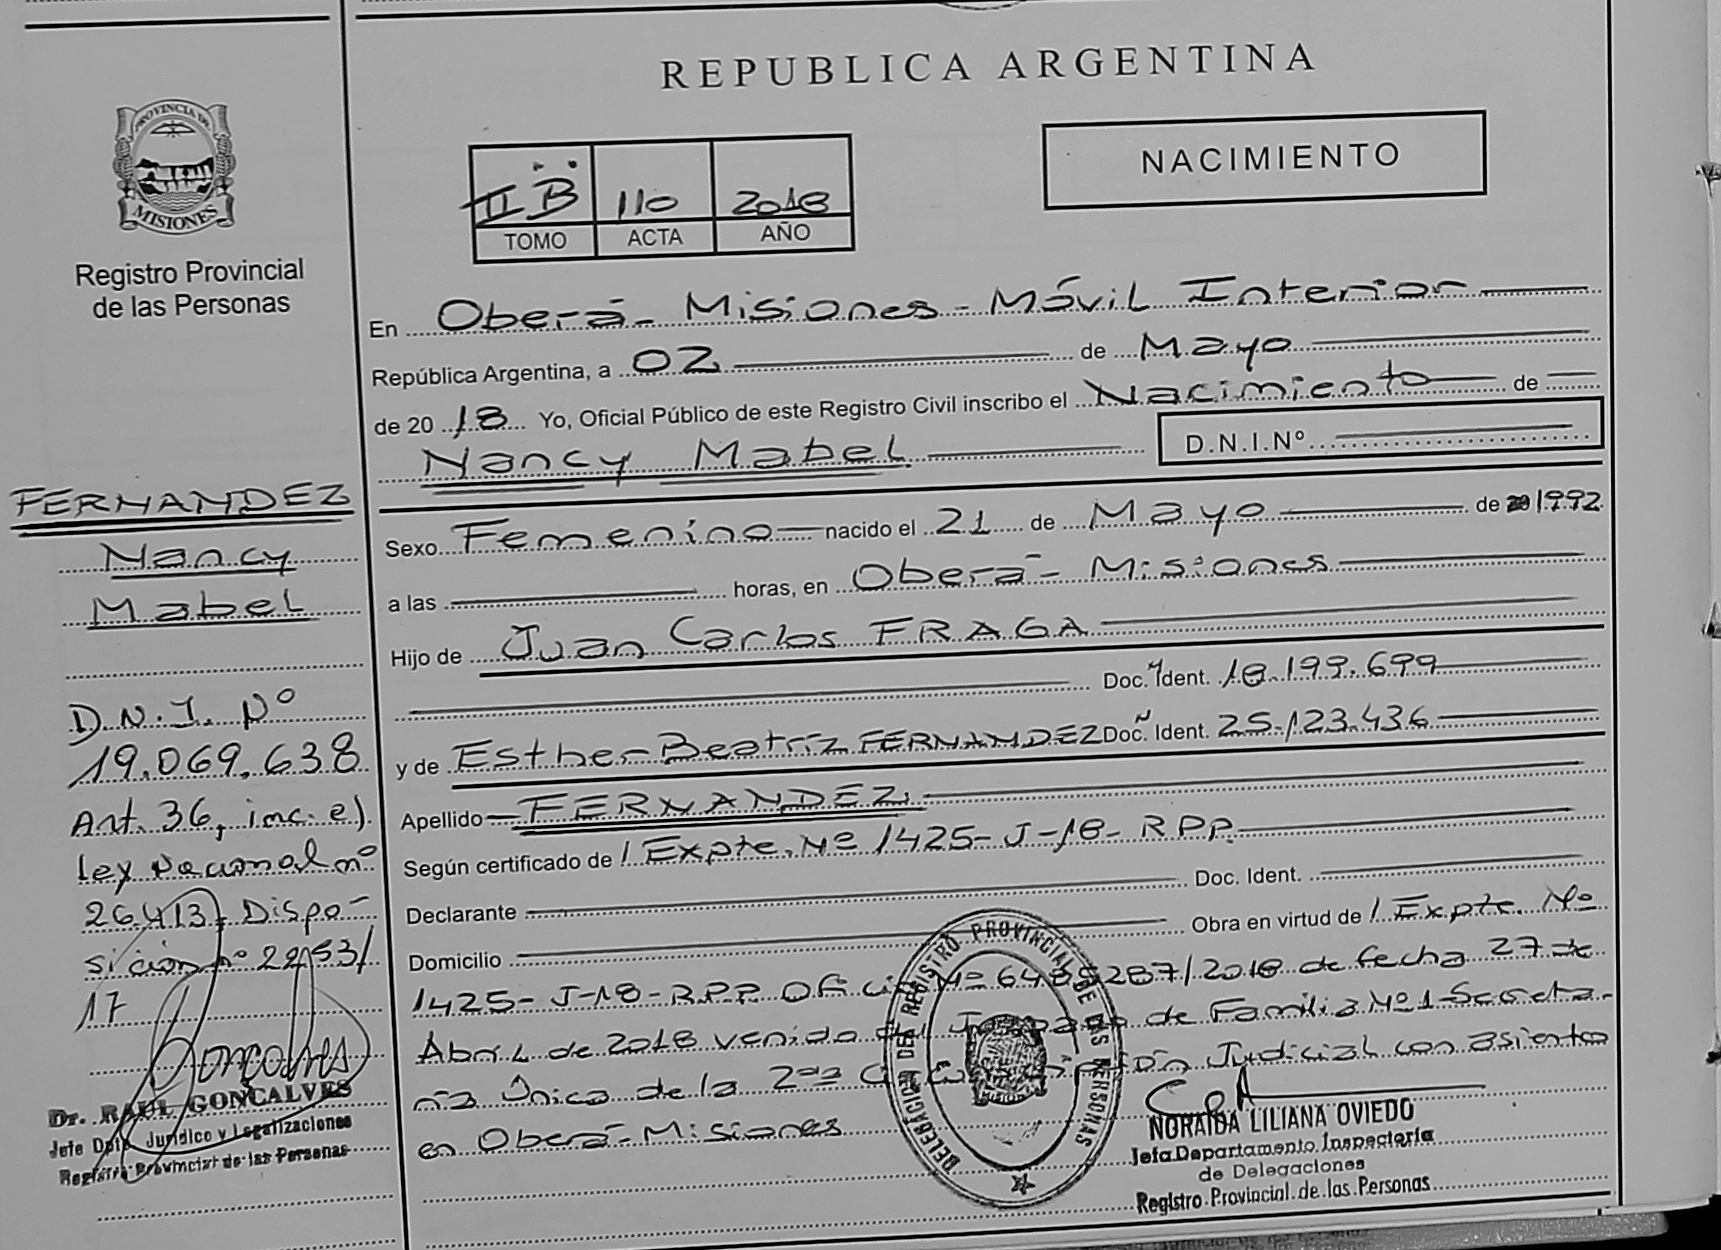 PROVINCIA DE
MISIONES
Registro Provincial
de las Personas
FERNANDEZ
Nancy
Mabel
D.N.I. Nº
19.069.638
Art. 36, inc. e)
Ley Nacional nº
26.413, Dispo-
sición nº 2253/
17
Goncalves
Dr. RAUL GONCALVES
Jefe Dpto. Jurídico y Legalizaciones
Registro Provincial de las Personas
REPUBLICA ARGENTINA
II B 110 2018
TOMO ACTA AÑO
NACIMIENTO
En Oberá - Misiones - Móvil Interior
República Argentina, a 02 de Mayo
de 2018 Yo, Oficial Público de este Registro Civil inscribo el Nacimiento de
Nancy Mabel D.N.I.Nº
Sexo Femenino nacido el 21 de Mayo de 1992
a las horas, en Oberá - Misiones
Hijo de Juan Carlos FRAGA
Doc. Ident. 18.199.699
y de Esther Beatríz FERNANDEZ Doc. Ident. 25.123.436
Apellido FERNANDEZ
Según certificado de / Expte. Nº 1425-J-18-RPP
Declarante Doc. Ident.
Domicilio Obra en virtud de / Expte. Nº
1425-J-18-RPP Oficio Nº 287/2018 de fecha 27 de
Abril de 2018 venido del Juzgado de Familia Nº 1 Secreta-
ría Única de la 2da Circunscripción Judicial con asiento
en Oberá - Misiones
DELEGACION DEL REGISTRO PROVINCIAL DE LAS PERSONAS
NORAIDA LILIANA OVIEDO
Jefa Departamento Inspectoría
de Delegaciones
Registro Provincial de las Personas